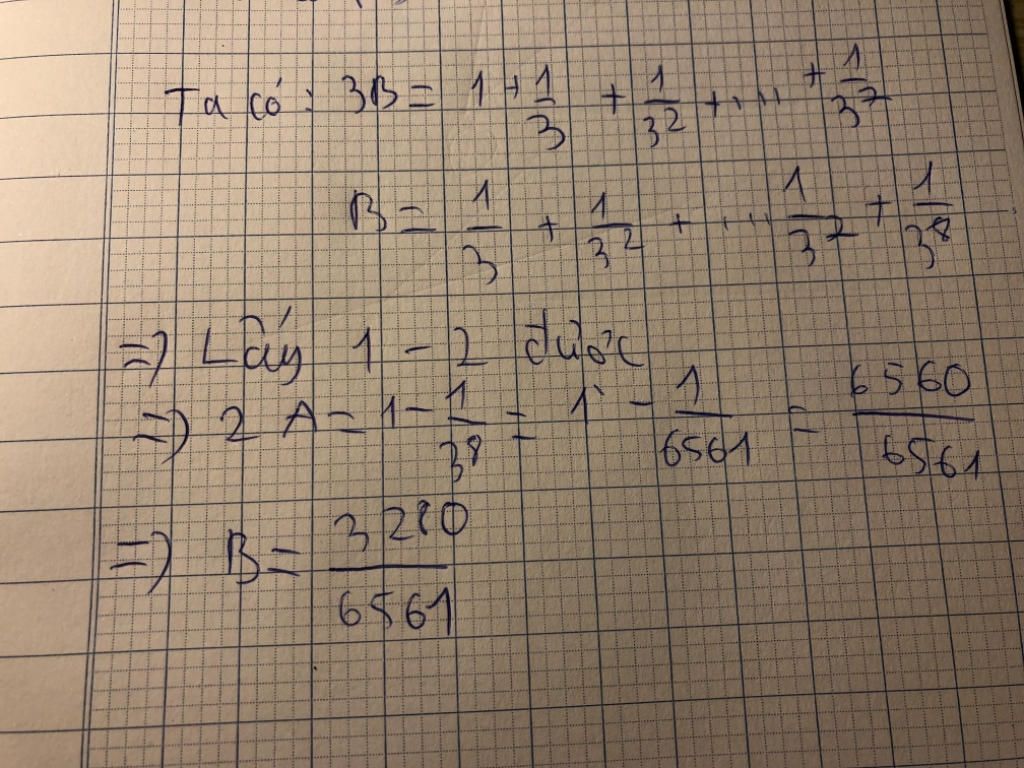 Ta có: 3B = 1 + 1/3 + 1/3² + .... + 1/3⁷
B = 1/3 + 1/3² + .... 1/3⁷ + 1/3⁸
=) Lấy 1 - 2 được
=) 2A = 1 - 1/3⁸ = 1 - 1/6561 = 6560/6561
=) B = 3280/6561